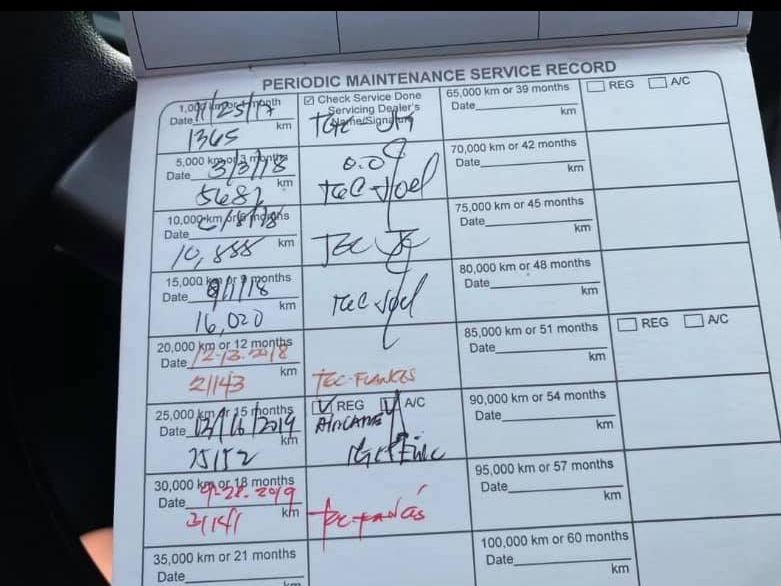 PERIODIC MAINTENANCE SERVICE RECORD
1,000 km or 1 month
Date 11/25/17
1365 km
☑ Check Service Done
Servicing Dealer's
Name/Signature
5,000 km or 3 months
Date 3/3/18
5682 km
TEC Joel
10,000 km or 6 months
Date
10,888 km
15,000 km or 9 months
Date
16,020 km
TEC Joel
20,000 km or 12 months
Date 12-13-2018
21143 km
25,000 km or 15 months
Date 03/16/2019
25152 km
REG A/C
30,000 km or 18 months
Date 9-28-2019
km
35,000 km or 21 months
Date
km
65,000 km or 39 months
Date
km
REG A/C
70,000 km or 42 months
Date
km
75,000 km or 45 months
Date
km
80,000 km or 48 months
Date
km
85,000 km or 51 months
Date
km
REG A/C
90,000 km or 54 months
Date
km
95,000 km or 57 months
Date
km
100,000 km or 60 months
Date
km